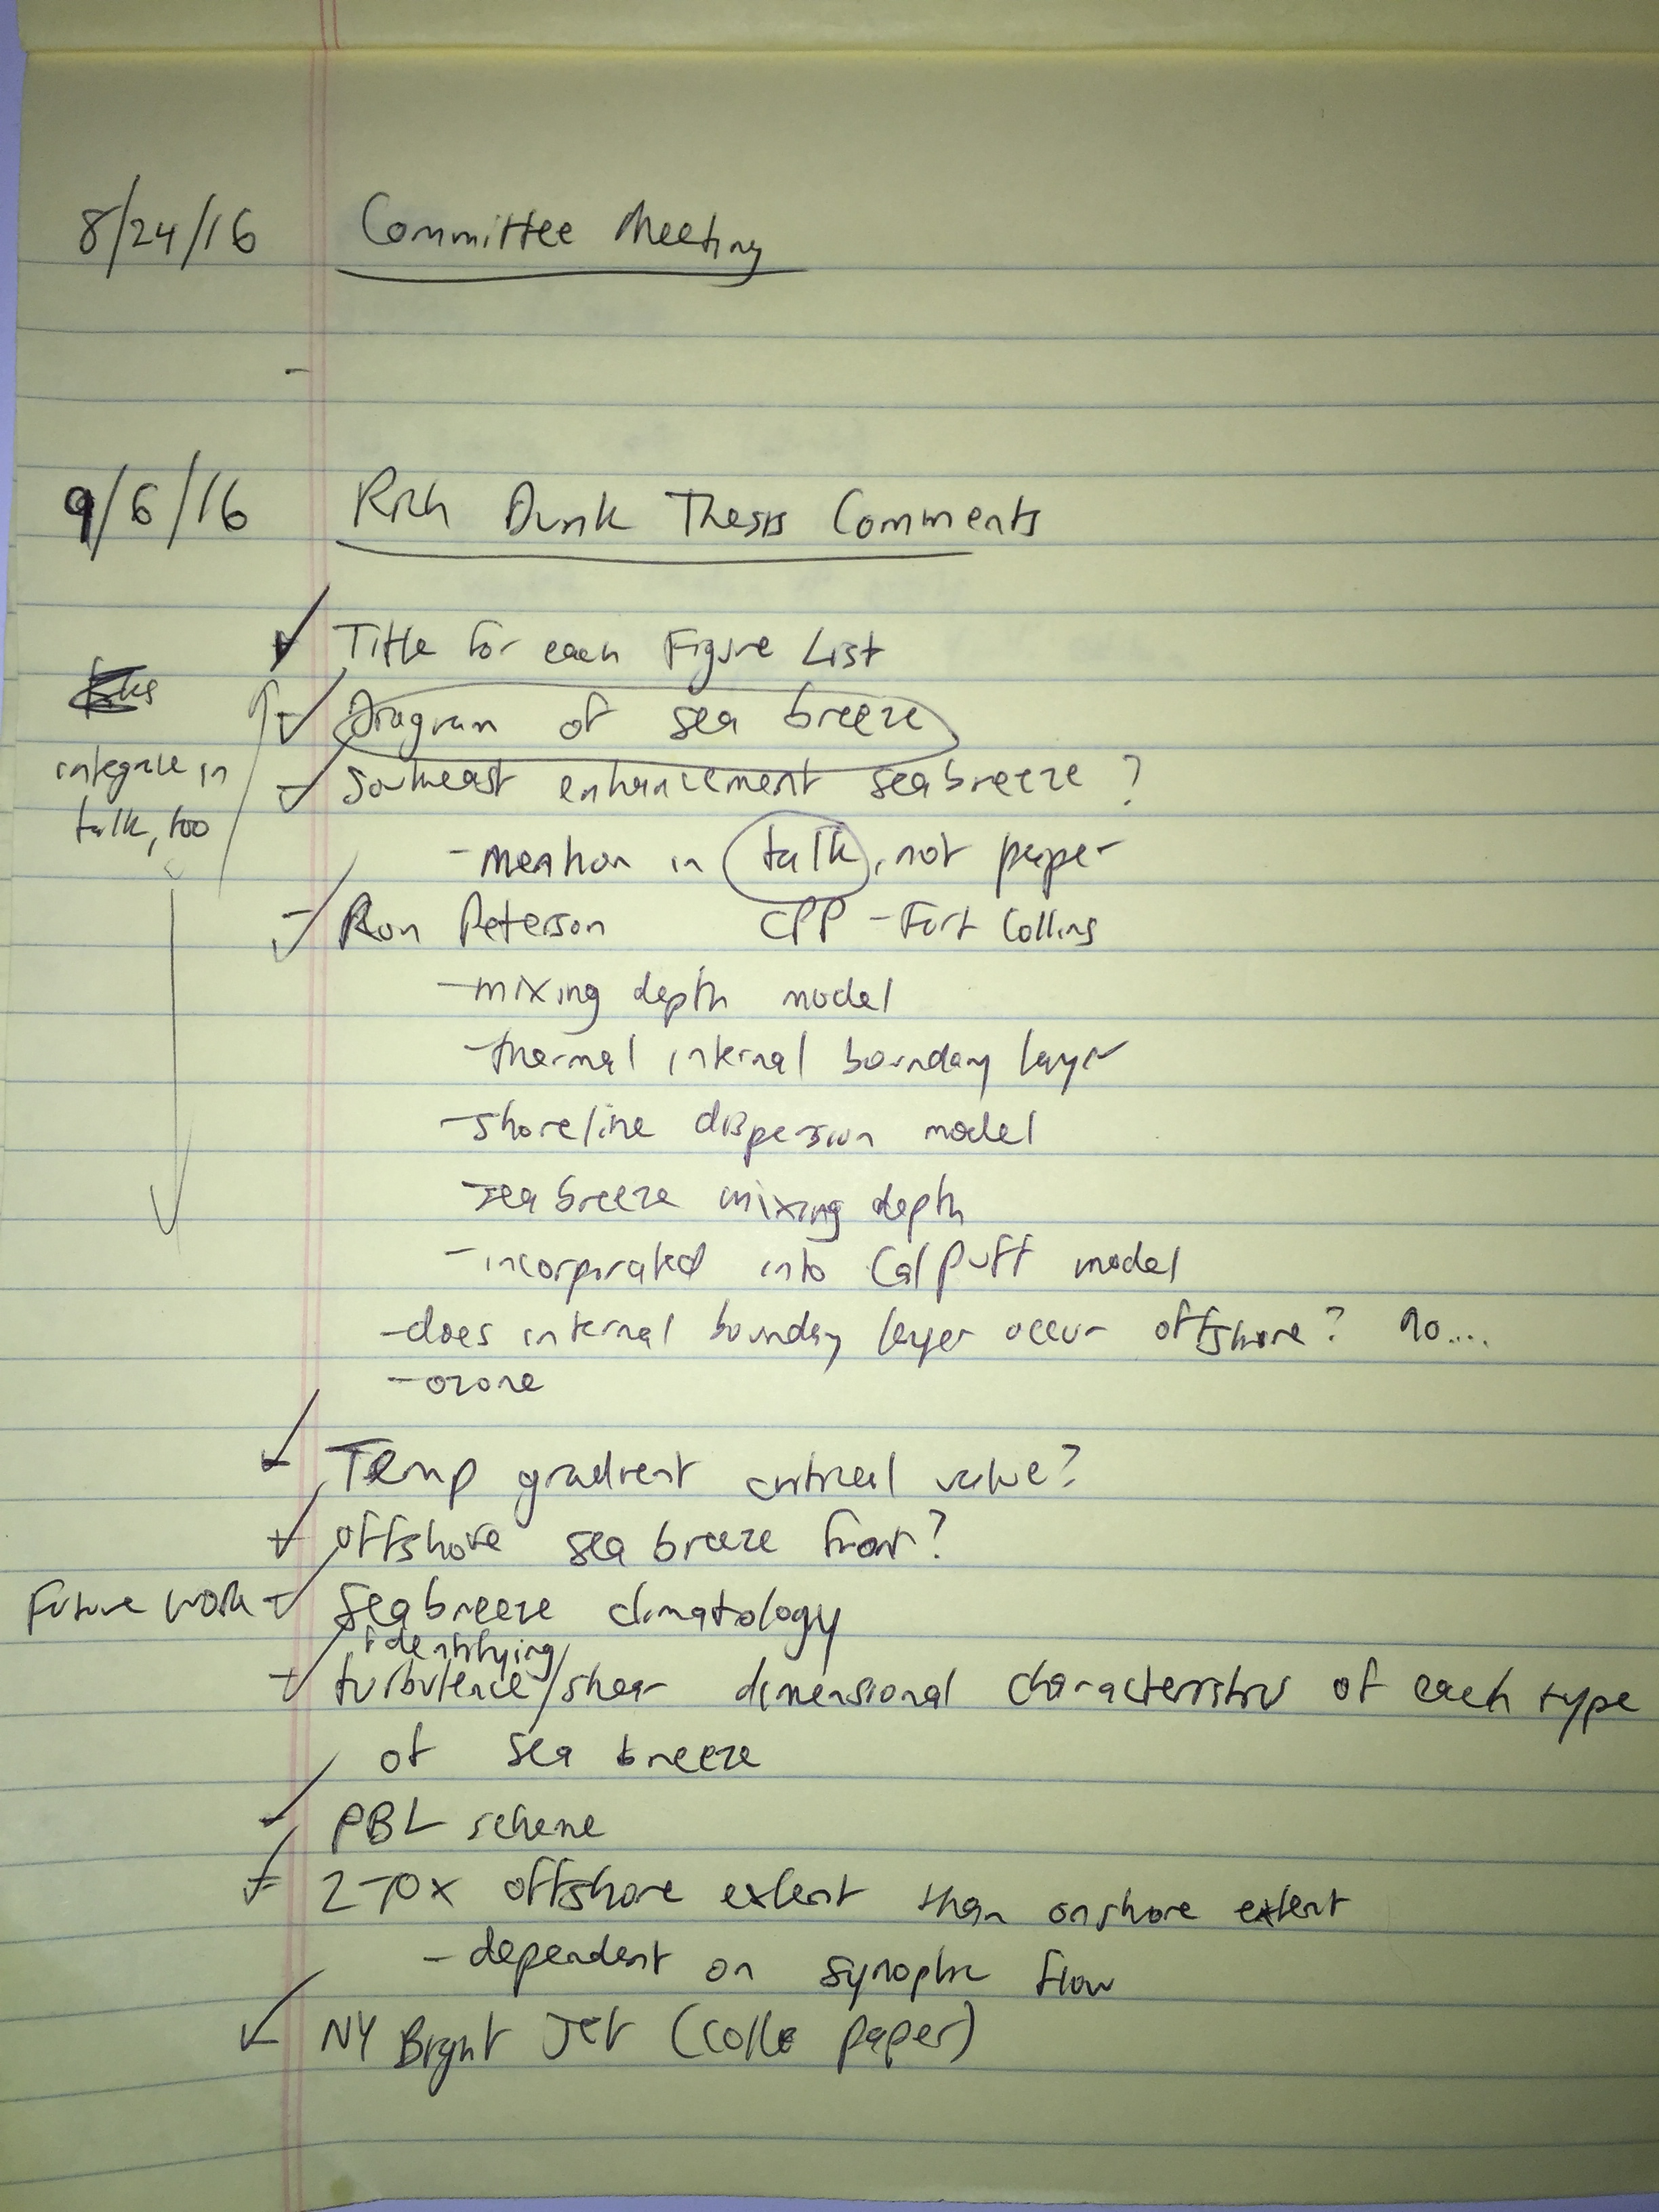 8/24/16 Committee Meeting
-
9/6/16 Rich Dunk Thesis Comments
✓ Title for each Figure List
✓ Diagram of sea breeze
integrate in
talk, too
✓ Southeast enhancement seabreeze?
- mention in talk, not paper
✓ Ron Peterson CPP - Fort Collins
- mixing depth model
- thermal internal boundary layer
- shoreline dispersion model
- sea breeze mixing depth
- incorporated into CalPuff model
- does internal boundary layer occur offshore? no....
- ozone
✓ Temp gradient critical value?
✓ offshore sea breeze front?
Future work - ✓ Sea breeze climatology
identifying
✓ turbulence/shear dimensional characteristics of each type
of sea breeze
✓ PBL scheme
✓ 2-10x offshore extent than onshore extent
- dependent on synoptic flow
✓ NY Bight Jet (Colle paper)